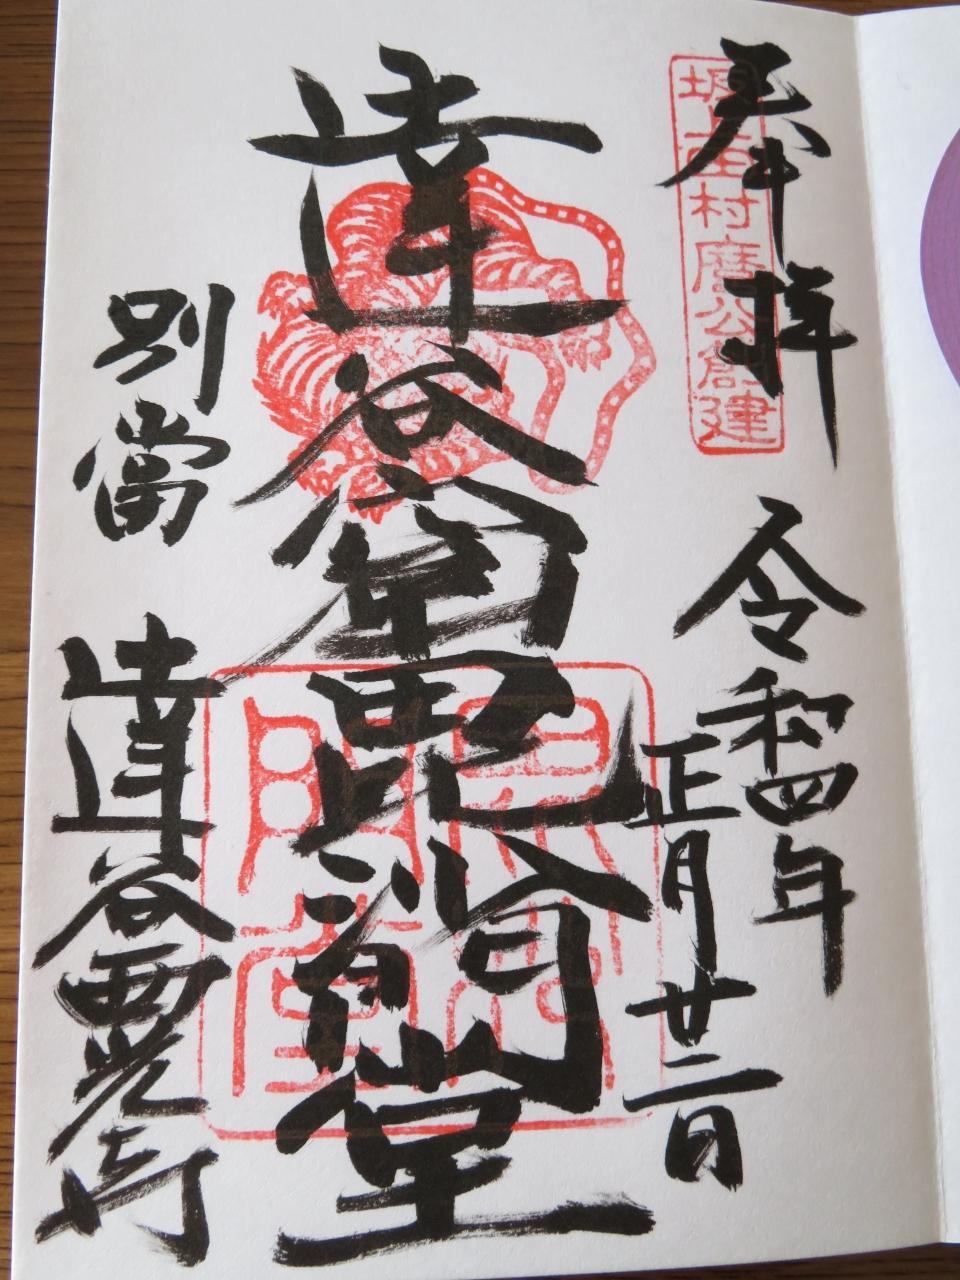 奉拝
坂上田村麿公創建
令和四年
正月廿二日
達谷窟毘沙門堂
別當
達谷西光寺